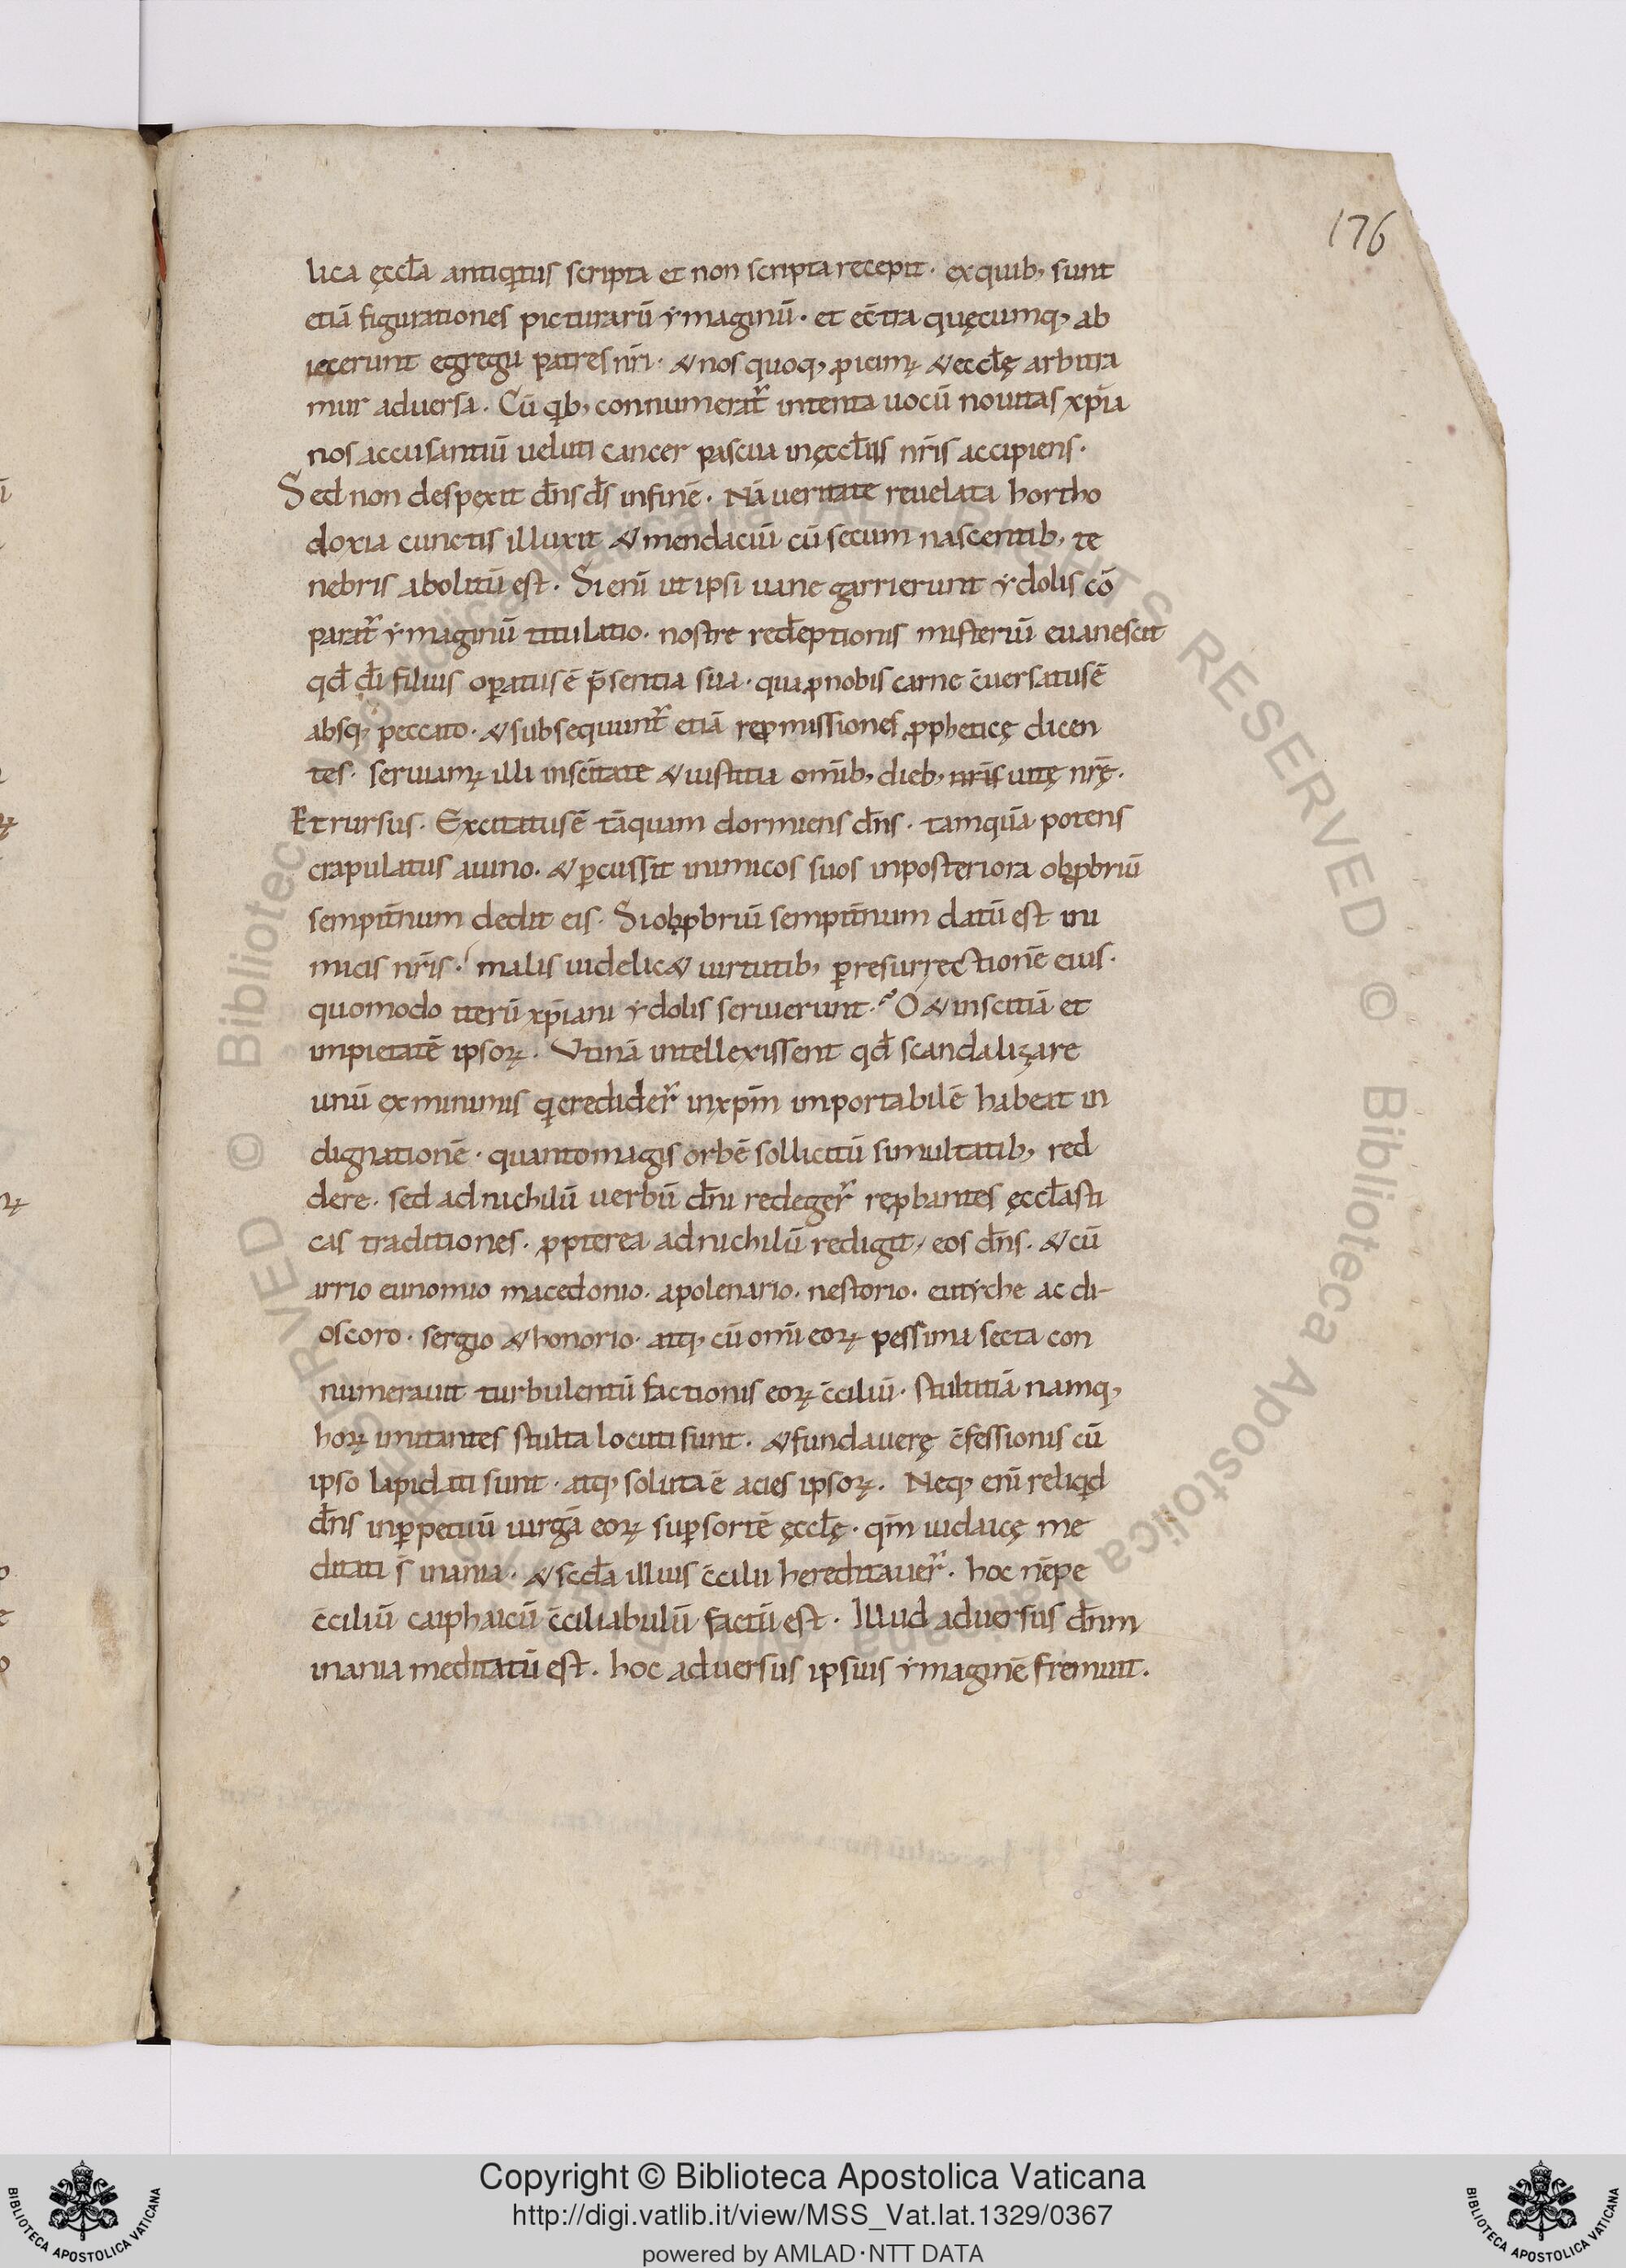 176
lica ęccl̄a antiq̇tus scripta et non scripta recepit · ex quib; sunt
etiā figurationes picturarū ymaginū · et ec̄tra quęcumq; ab
iecerunt egregii patres nr̄i · & nos quoq; ꝓicimꝰ & eccl̄ę arbitra
mur aduersa . Cū qb; connumerat̄ intenta uocū nouitas xp̄ia
nos accusantiū ueluti cancer pascua in ęccl̄iis nr̄is accipiens ·
Sed non despexit dn̄s ds̄ in finē · Nā ueritate reuelata hortho
doxia cunctis illuxit & mendaciū cū secum nascentib; te
nebris abolitū est . Si enī ut ipsi uane garrierunt ydolis cō
parat̄ ymaginū titulatio · nostre redēptionis misteriū euanescit
qd̄ dī filius oꝑatus ē p̄sentia sua · qua ꝓ nobis carne c̄uersatus ē
absq; peccato · & subsequunt̄ etiā reꝓmissiones ꝓpheticę dicen
tes · seruiamꝰ illi in sc̄itate & iustitia om̄ib; dieb; nr̄is uitę nr̄ę ·
Et rursus · Excitatus ē tāquam dormiens dn̄s · tamquā potens
crapulatus a uino · & ꝑcussit inimicos suos in posteriora obꝓbriū
sempit̄num dedit eis · Si obꝓbriū sempit̄num datū est ini
micis nr̄is · malis uidelic& uirtutib; ꝑ resurrectionē eius ·
quomodo iterū xp̄iani ydolis seruierunt · O & inscitiā et
impietatē ipsoꝝ . Utinā intellexissent qd̄ scandalizare
unū ex minimis q̇ credider̄ in xp̄m importabilē habeat in
dignationē · quanto magis orbē sollicitū simultatib; red
dere · sed ad nichilū uerbū dn̄i redeger̄ reꝓbantes ęccl̄asti
cas traditiones · ꝓpterea ad nichilū redigit eos dn̄s · & cū
arrio eunomio macedonio · apolenario · nestorio · eutyche ac di-
oscoro · sergio & honorio · atq; cū om̄i eoꝝ pessima secta con
numerauit turbulentū factionis eoꝝ c̄ciliū · stultitiā namq;
hoꝝ imitantes stulta locuti sunt · & fundauerę c̄fessionis cū
ipso lapidati sunt · atq; soluta ē acies ipsoꝝ . Neq; enī reliqd
dn̄s in ꝑpetuū uirgā eoꝝ suꝑ sortē ęccl̄ę · qm̄ iudaicę me
ditati s̄ inania · & sccl̄a illius c̄cilii hereditauer̄ · hoc nēpe
c̄ciliū caiphaicū c̄ciliabulū factū est · Illud aduersus dn̄m
inania meditatū est . hoc aduersus ipsius ymaginē fremuit .
© Biblioteca Apostolica Vaticana ALL RIGHTS RESERVED
Copyright © Biblioteca Apostolica Vaticana
http://digi.vatlib.it/view/MSS_Vat.lat.1329/0367
powered by AMLAD·NTT DATA
BIBLIOTECA APOSTOLICA VATICANA
BIBLIOTECA APOSTOLICA VATICANA